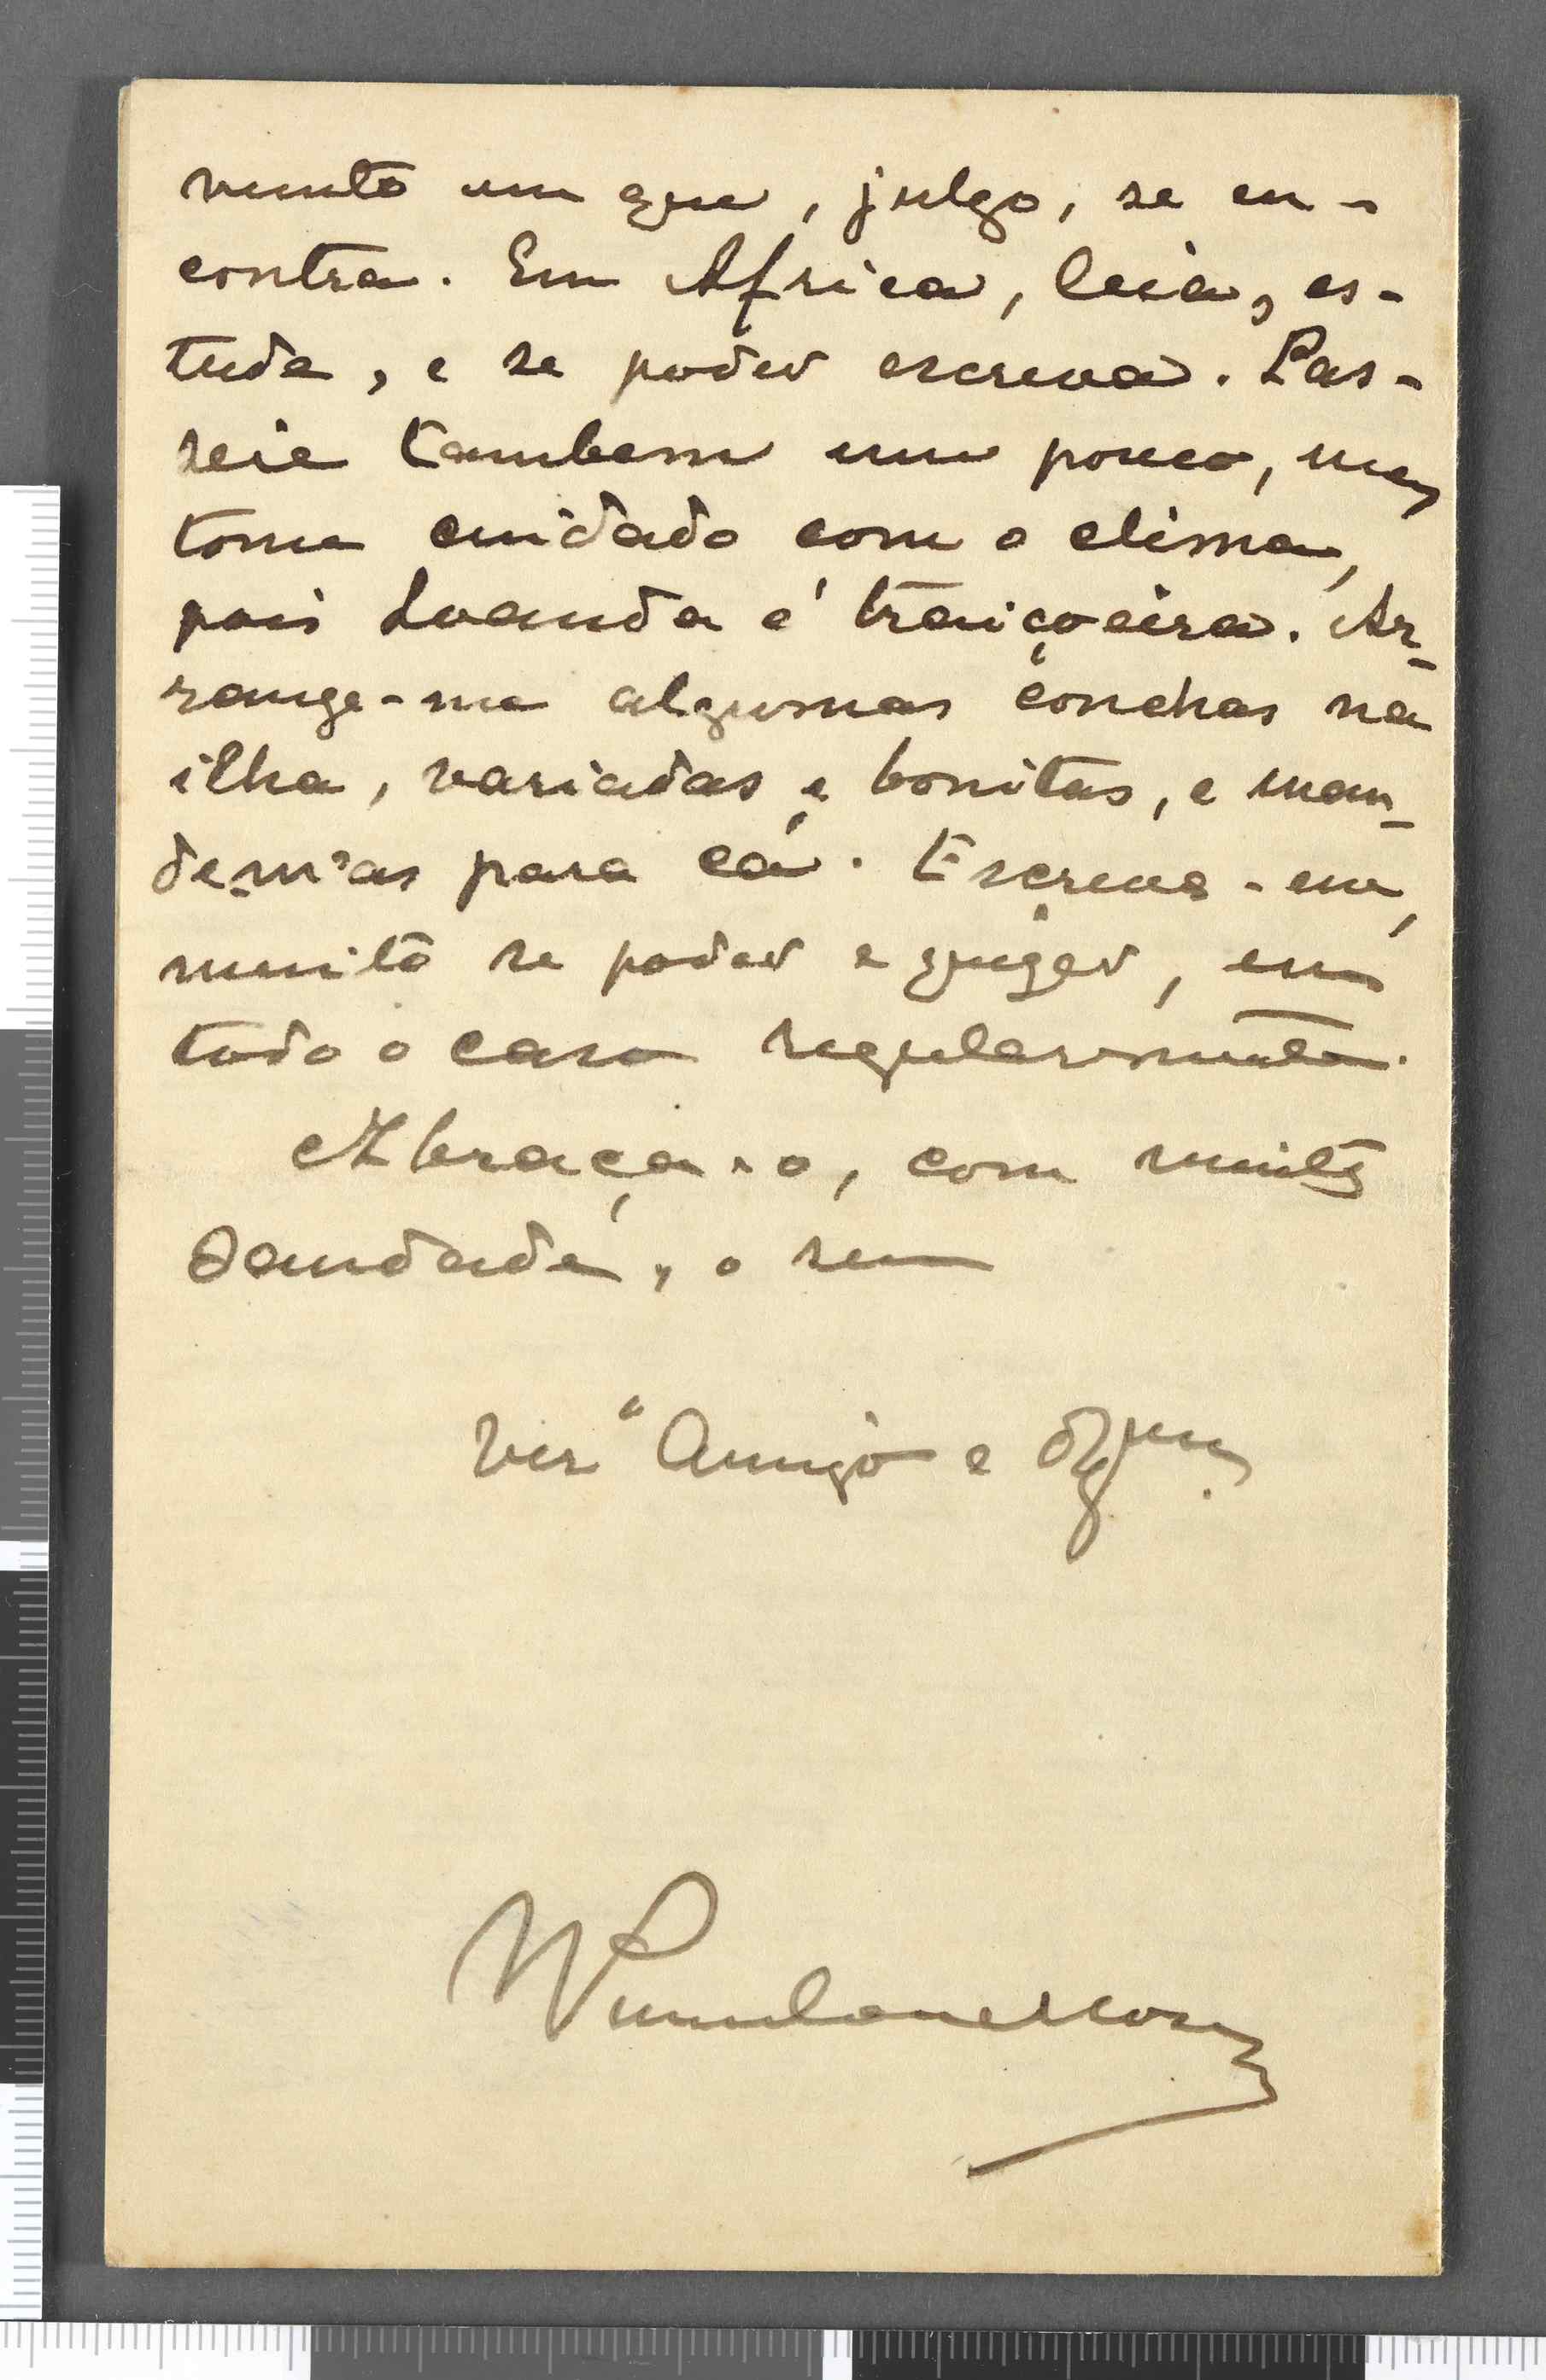 mento em que, julgo, se en-
contra. Em Africa, leia, es-
tude, e se poder escreva. Pas-
seie tambem um pouco, mas
tome cuidado com o clima,
pois Luanda é traiçoeira. Ar-
range-me algumas conchas na
ilha, variadas e bonitas, e man-
de-m'as para cá. Escreva-me,
muito se poder e quizer, em
todo o caso regularmente.
Abraça-o, com muita
Saudade, o seu
Verº Amigo e